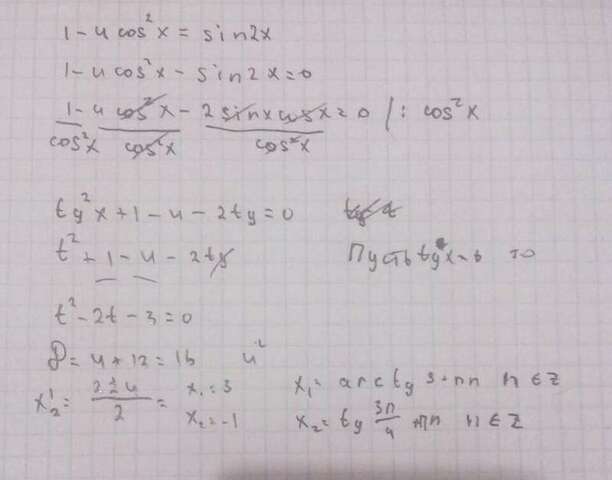 1 - 4 cos²x = sin2x
1 - 4 cos²x - sin2x = 0
1/cos²x - 4 cos²x/cos²x - 2 sinx cosx/cos²x = 0 /: cos²x
tg²x + 1 - 4 - 2tg = 0
t² + 1 - 4 - 2tg Пусть tg x = t то
t² - 2t - 3 = 0
D = 4 + 12 = 16 4²
x½ = (2 ± 4)/2 = x₁ = 3 x₂ = -1
x₁ = arctg 3 + πn n ∈ Z
x₂ = tg 3π/4 + πn n ∈ Z